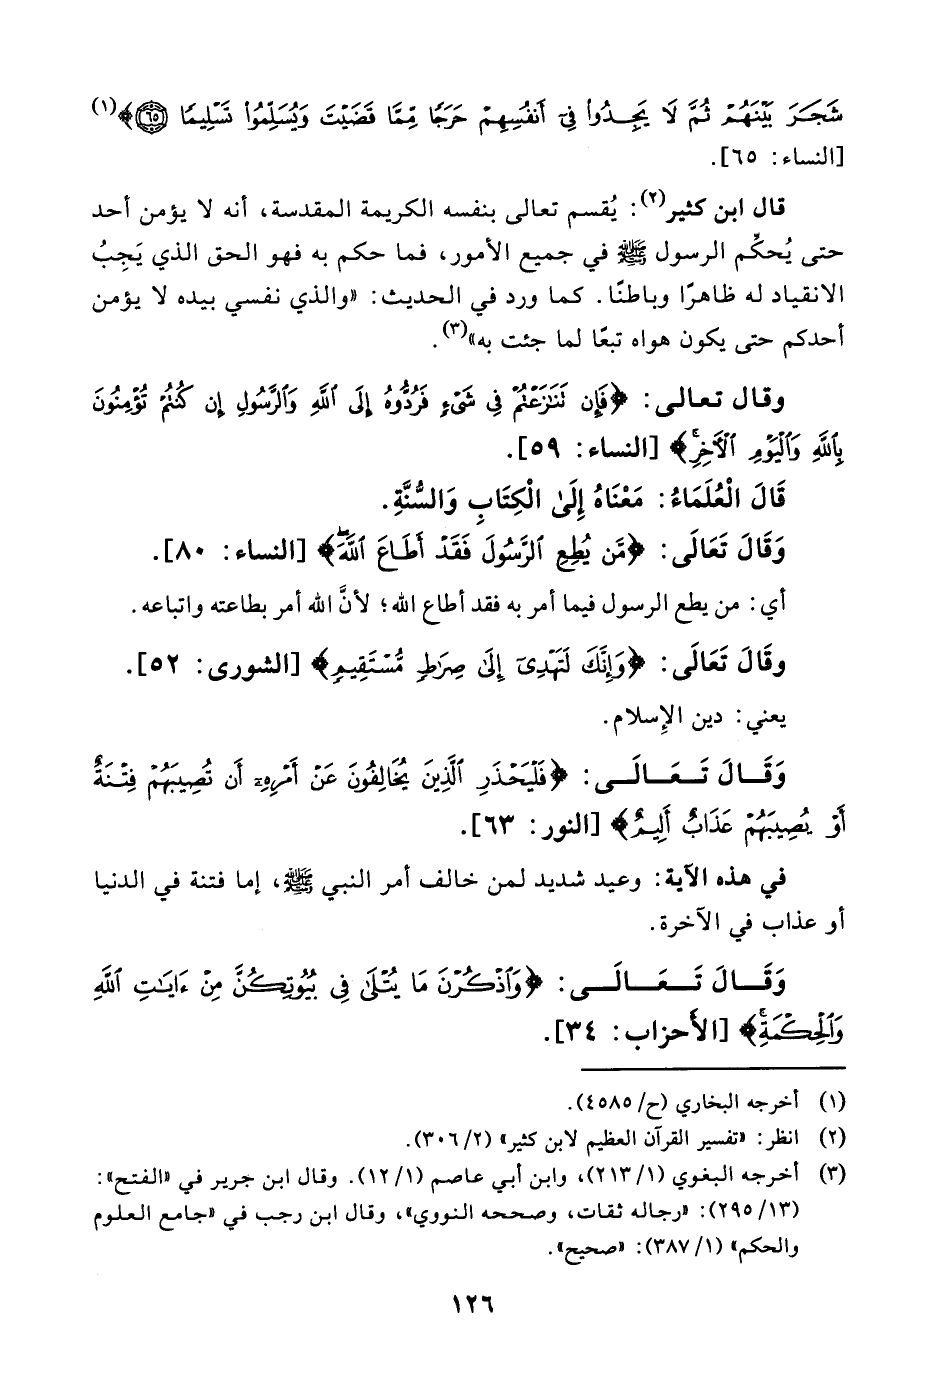 شَجَرَ بَيْنَهُمْ ثُمَّ لَا يَجِدُوا۟ فِىٓ أَنفُسِهِمْ حَرَجًا مِّمَّا قَضَيْتَ وَيُسَلِّمُوا۟ تَسْلِيمًا ٦٥﴾(١)
[النساء: ٦٥].
قال ابن كثير(٢): يُقسم تعالى بنفسه الكريمة المقدسة، أنه لا يؤمن أحد
حتى يُحكِّم الرسول ﷺ في جميع الأمور، فما حكم به فهو الحق الذي يَجِبُ
الانقياد له ظاهرًا وباطنًا. كما ورد في الحديث: «والذي نفسي بيده لا يؤمن
أحدكم حتى يكون هواه تبعًا لما جئت به»(٣).
وقال تعالى: ﴿فَإِن تَنَٰزَعْتُمْ فِى شَىْءٍ فَرُدُّوهُ إِلَى ٱللَّهِ وَٱلرَّسُولِ إِن كُنتُمْ تُؤْمِنُونَ
بِٱللَّهِ وَٱلْيَوْمِ ٱلْءَاخِرِۚ﴾ [النساء: ٥٩].
قَالَ الْعُلَمَاءُ: مَعْنَاهُ إِلَىٰ الْكِتَابِ وَالسُّنَّةِ.
وَقَالَ تَعَالَى: ﴿مَّن يُطِعِ ٱلرَّسُولَ فَقَدْ أَطَاعَ ٱللَّهَۖ﴾ [النساء: ٨٠].
أي: من يطع الرسول فيما أمر به فقد أطاع الله؛ لأنَّ الله أمر بطاعته واتباعه.
وقَالَ تَعَالَى: ﴿وَإِنَّكَ لَتَهْدِىٓ إِلَىٰ صِرَٰطٍ مُّسْتَقِيمٍ﴾ [الشورى: ٥٢].
يعني: دين الإسلام.
وَقَالَ تَعَالَى: ﴿فَلْيَحْذَرِ ٱلَّذِينَ يُخَالِفُونَ عَنْ أَمْرِهِۦٓ أَن تُصِيبَهُمْ فِتْنَةٌ
أَوْ يُصِيبَهُمْ عَذَابٌ أَلِيمٌ﴾ [النور: ٦٣].
في هذه الآية: وعيد شديد لمن خالف أمر النبي ﷺ، إما فتنة في الدنيا
أو عذاب في الآخرة.
وَقَالَ تَعَالَى: ﴿وَٱذْكُرْنَ مَا يُتْلَىٰ فِى بُيُوتِكُنَّ مِنْ ءَايَٰتِ ٱللَّهِ
وَٱلْحِكْمَةِۚ﴾ [الأحزاب: ٣٤].
(١) أخرجه البخاري (ح/ ٤٥٨٥).
(٢) انظر: «تفسير القرآن العظيم لابن كثير» (٢/ ٣٠٦).
(٣) أخرجه البغوي (١/ ٢١٣)، وابن أبي عاصم (١/ ١٢). وقال ابن جرير في «الفتح»:
(١٣/ ٢٩٥): «رجاله ثقات، وصححه النووي»، وقال ابن رجب في «جامع العلوم
والحكم» (١/ ٣٨٧): «صحيح».
١٢٦